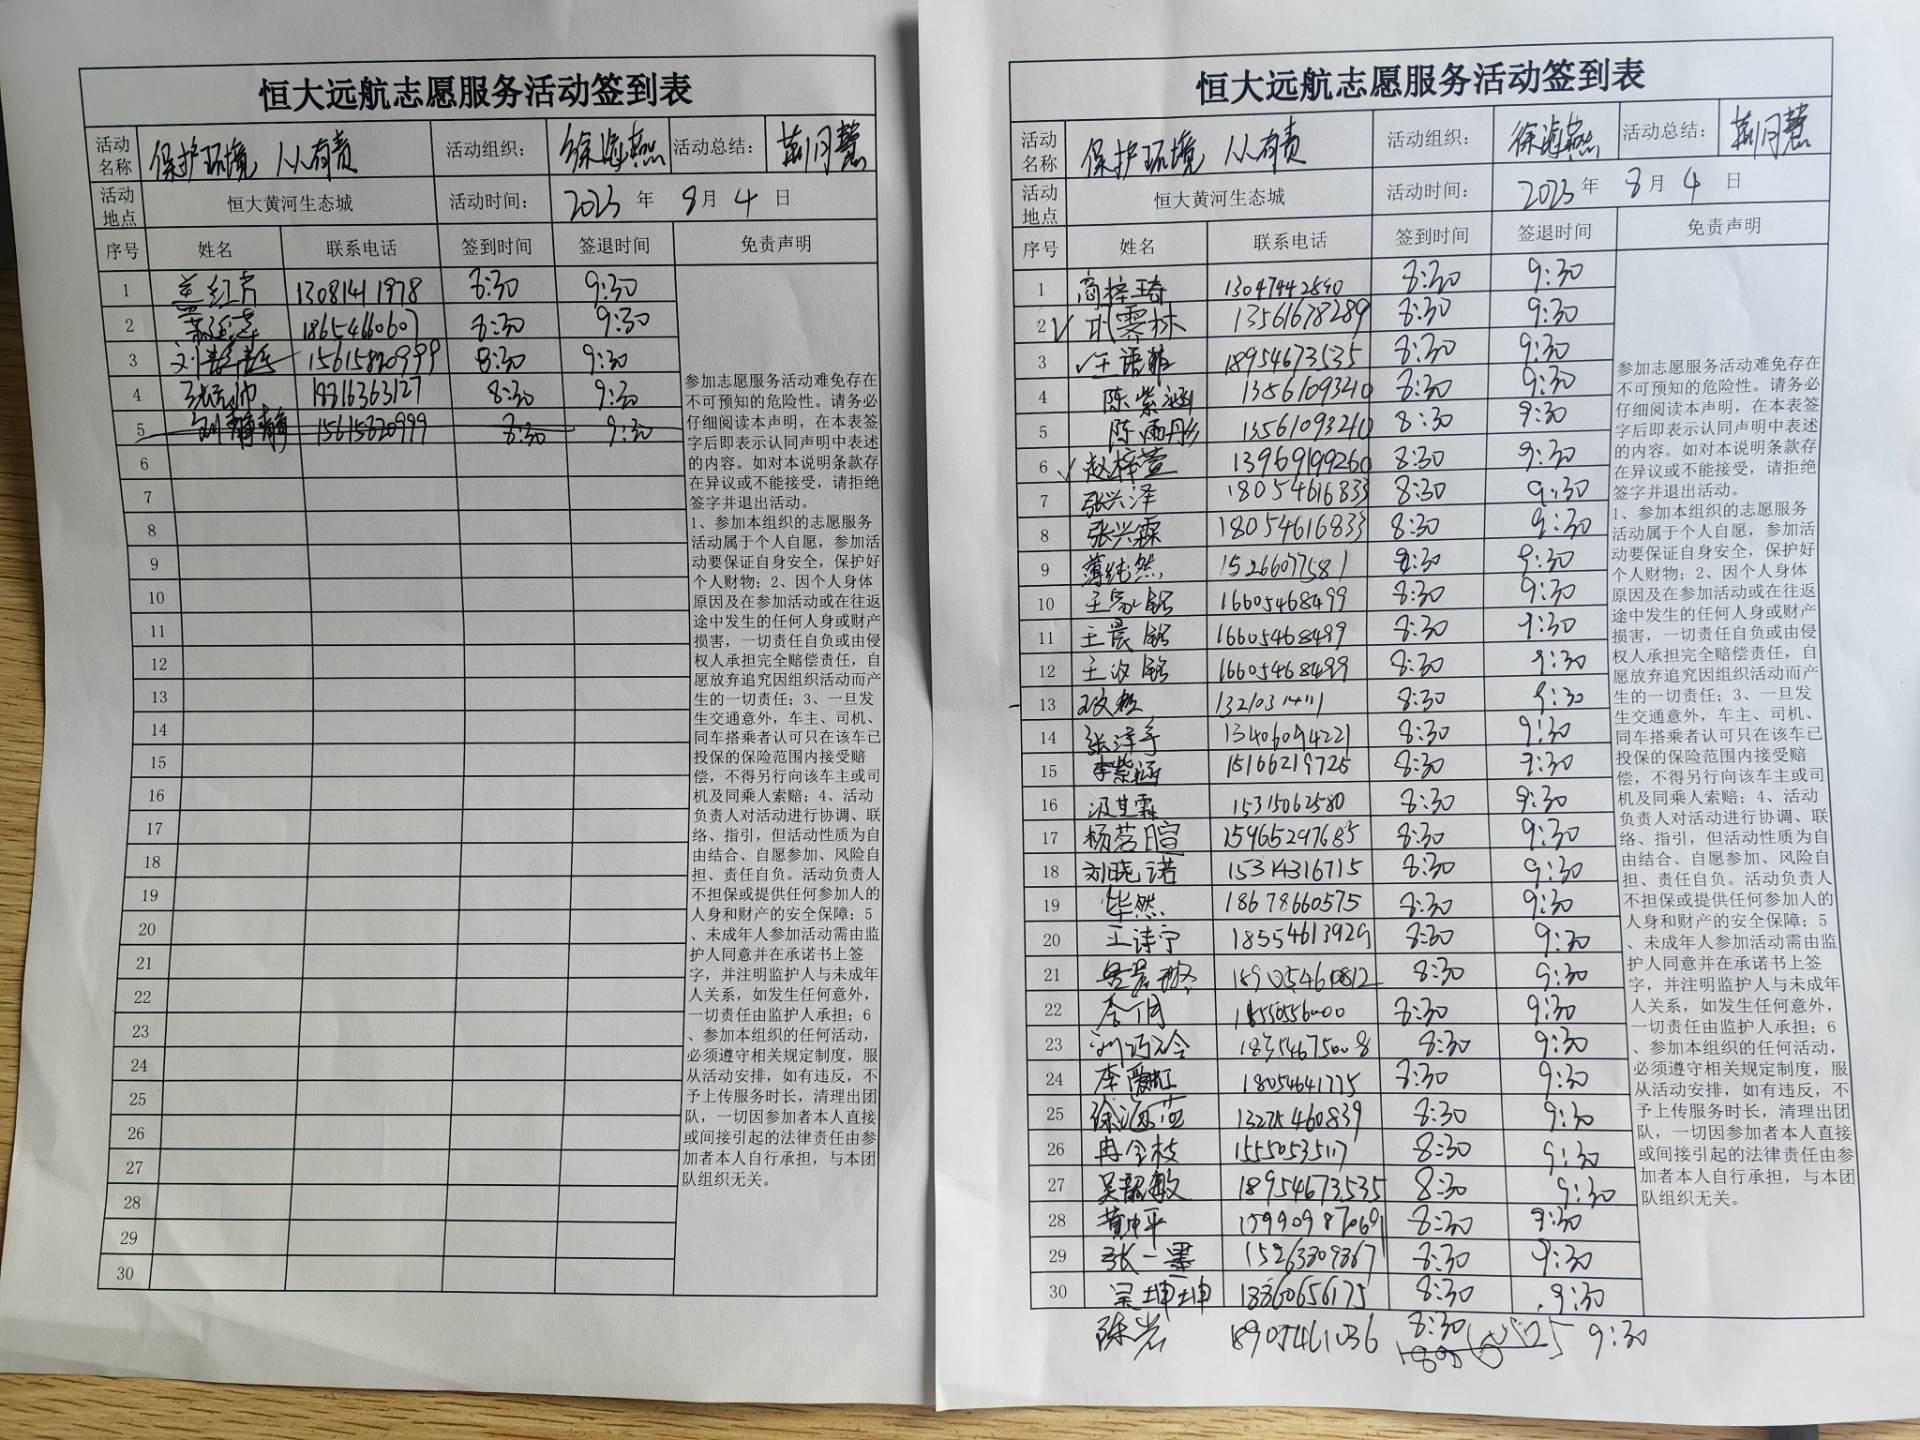 恒大远航志愿服务活动签到表
活动名称 保护环境 人人有责 活动组织： 徐海燕 活动总结：
活动地点 恒大黄河生态城 活动时间： 2023 年 8 月 4 日
序号 姓名 联系电话 签到时间 签退时间 免责声明
1 13081411978 8:30 9:30
2 18654660607 8:30 9:30
3 15615820999 8:30 9:30
4 8:30 9:30
5 刘静静 15615820999 8:30 9:30
6
7
8
9
10
11
12
13
14
15
16
17
18
19
20
21
22
23
24
25
26
27
28
29
30
参加志愿服务活动难免存在
不可预知的危险性。请务必
仔细阅读本声明，在本表签
字后即表示认同声明中表述
的内容。如对本说明条款存
在异议或不能接受，请拒绝
签字并退出活动。
1、参加本组织的志愿服务
活动属于个人自愿，参加活
动要保证自身安全，保护好
个人财物；2、因个人身体
原因及在参加活动或在往返
途中发生的任何人身或财产
损害，一切责任自负或由侵
权人承担完全赔偿责任，自
愿放弃追究因组织活动而产
生的一切责任；3、一旦发
生交通意外，车主、司机、
同车搭乘者认可只在该车已
投保的保险范围内接受赔
偿，不得另行向该车主或司
机及同乘人索赔；4、活动
负责人对活动进行协调、联
络、指引，但活动性质为自
由结合、自愿参加、风险自
担、责任自负。活动负责人
不担保或提供任何参加人的
人身和财产的安全保障；5
、未成年人参加活动需由监
护人同意并在承诺书上签
字，并注明监护人与未成年
人关系，如发生任何意外，
一切责任由监护人承担；6
、参加本组织的任何活动，
必须遵守相关规定制度，服
从活动安排，如有违反，不
予上传服务时长，清理出团
队，一切因参加者本人直接
或间接引起的法律责任由参
加者本人自行承担，与本团
队组织无关。
恒大远航志愿服务活动签到表
活动名称 保护环境 人人有责 活动组织： 徐海燕 活动总结：
活动地点 恒大黄河生态城 活动时间： 2023 年 8 月 4 日
序号 姓名 联系电话 签到时间 签退时间 免责声明
1 高梓琦 13047442890 8:30 9:30
2 13561678289 8:30 9:30
3 王语 18954673535 8:30 9:30
4 陈紫涵 13561093210 8:30 9:30
5 陈雨彤 13561093210 8:30 9:30
6 赵梓萱 13969199260 8:30 9:30
7 张兴泽 18054616833 8:30 9:30
8 张兴霖 18054616833 8:30 9:30
9 薄纯然 15266077581 8:30 9:30
10 16605468499 8:30 9:30
11 王晨铭 16605468499 8:30 9:30
12 16605468499 8:30 9:30
13 8:30 9:30
14 13406094221 8:30 9:30
15 李紫涵 15166219725 8:30 9:30
16 15315062580 8:30 9:30
17 杨茗暄 15965297685 8:30 9:30
18 刘晓诺 15314316715 8:30 9:30
19 毕然 18678660575 8:30 9:30
20 王诗宁 18554613929 8:30 9:30
21 18905460812 8:30 9:30
22 8:30 9:30
23 8:30 9:30
24 李 18054641775 8:30 9:30
25 徐海蓝 13275460839 8:30 9:30
26 冉令枝 15550535117 8:30 9:30
27 吴 18954673535 8:30 9:30
28 黄中平 15990987069 8:30 9:30
29 张一墨 15263809367 8:30 9:30
30 坤坤 18860656175 8:30 9:30
陈岩 18905461036 8:30 9:30
参加志愿服务活动难免存在
不可预知的危险性。请务必
仔细阅读本声明，在本表签
字后即表示认同声明中表述
的内容。如对本说明条款存
在异议或不能接受，请拒绝
签字并退出活动。
1、参加本组织的志愿服务
活动属于个人自愿，参加活
动要保证自身安全，保护好
个人财物；2、因个人身体
原因及在参加活动或在往返
途中发生的任何人身或财产
损害，一切责任自负或由侵
权人承担完全赔偿责任，自
愿放弃追究因组织活动而产
生的一切责任；3、一旦发
生交通意外，车主、司机、
同车搭乘者认可只在该车已
投保的保险范围内接受赔
偿，不得另行向该车主或司
机及同乘人索赔；4、活动
负责人对活动进行协调、联
络、指引，但活动性质为自
由结合、自愿参加、风险自
担、责任自负。活动负责人
不担保或提供任何参加人的
人身和财产的安全保障；5
、未成年人参加活动需由监
护人同意并在承诺书上签
字，并注明监护人与未成年
人关系，如发生任何意外，
一切责任由监护人承担；6
、参加本组织的任何活动，
必须遵守相关规定制度，服
从活动安排，如有违反，不
予上传服务时长，清理出团
队，一切因参加者本人直接
或间接引起的法律责任由参
加者本人自行承担，与本团
队组织无关。